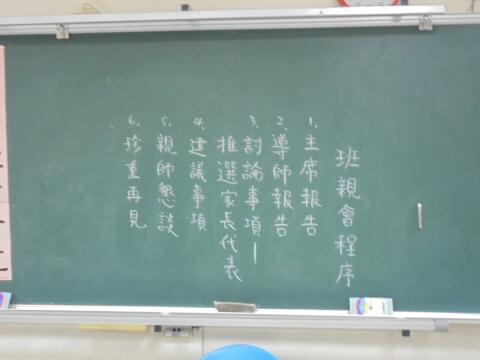 班親會程序
1、主席報告
2、導師報告
3、討論事項—
推選家長代表
4、建議事項
5、親師懇談
6、珍重再見